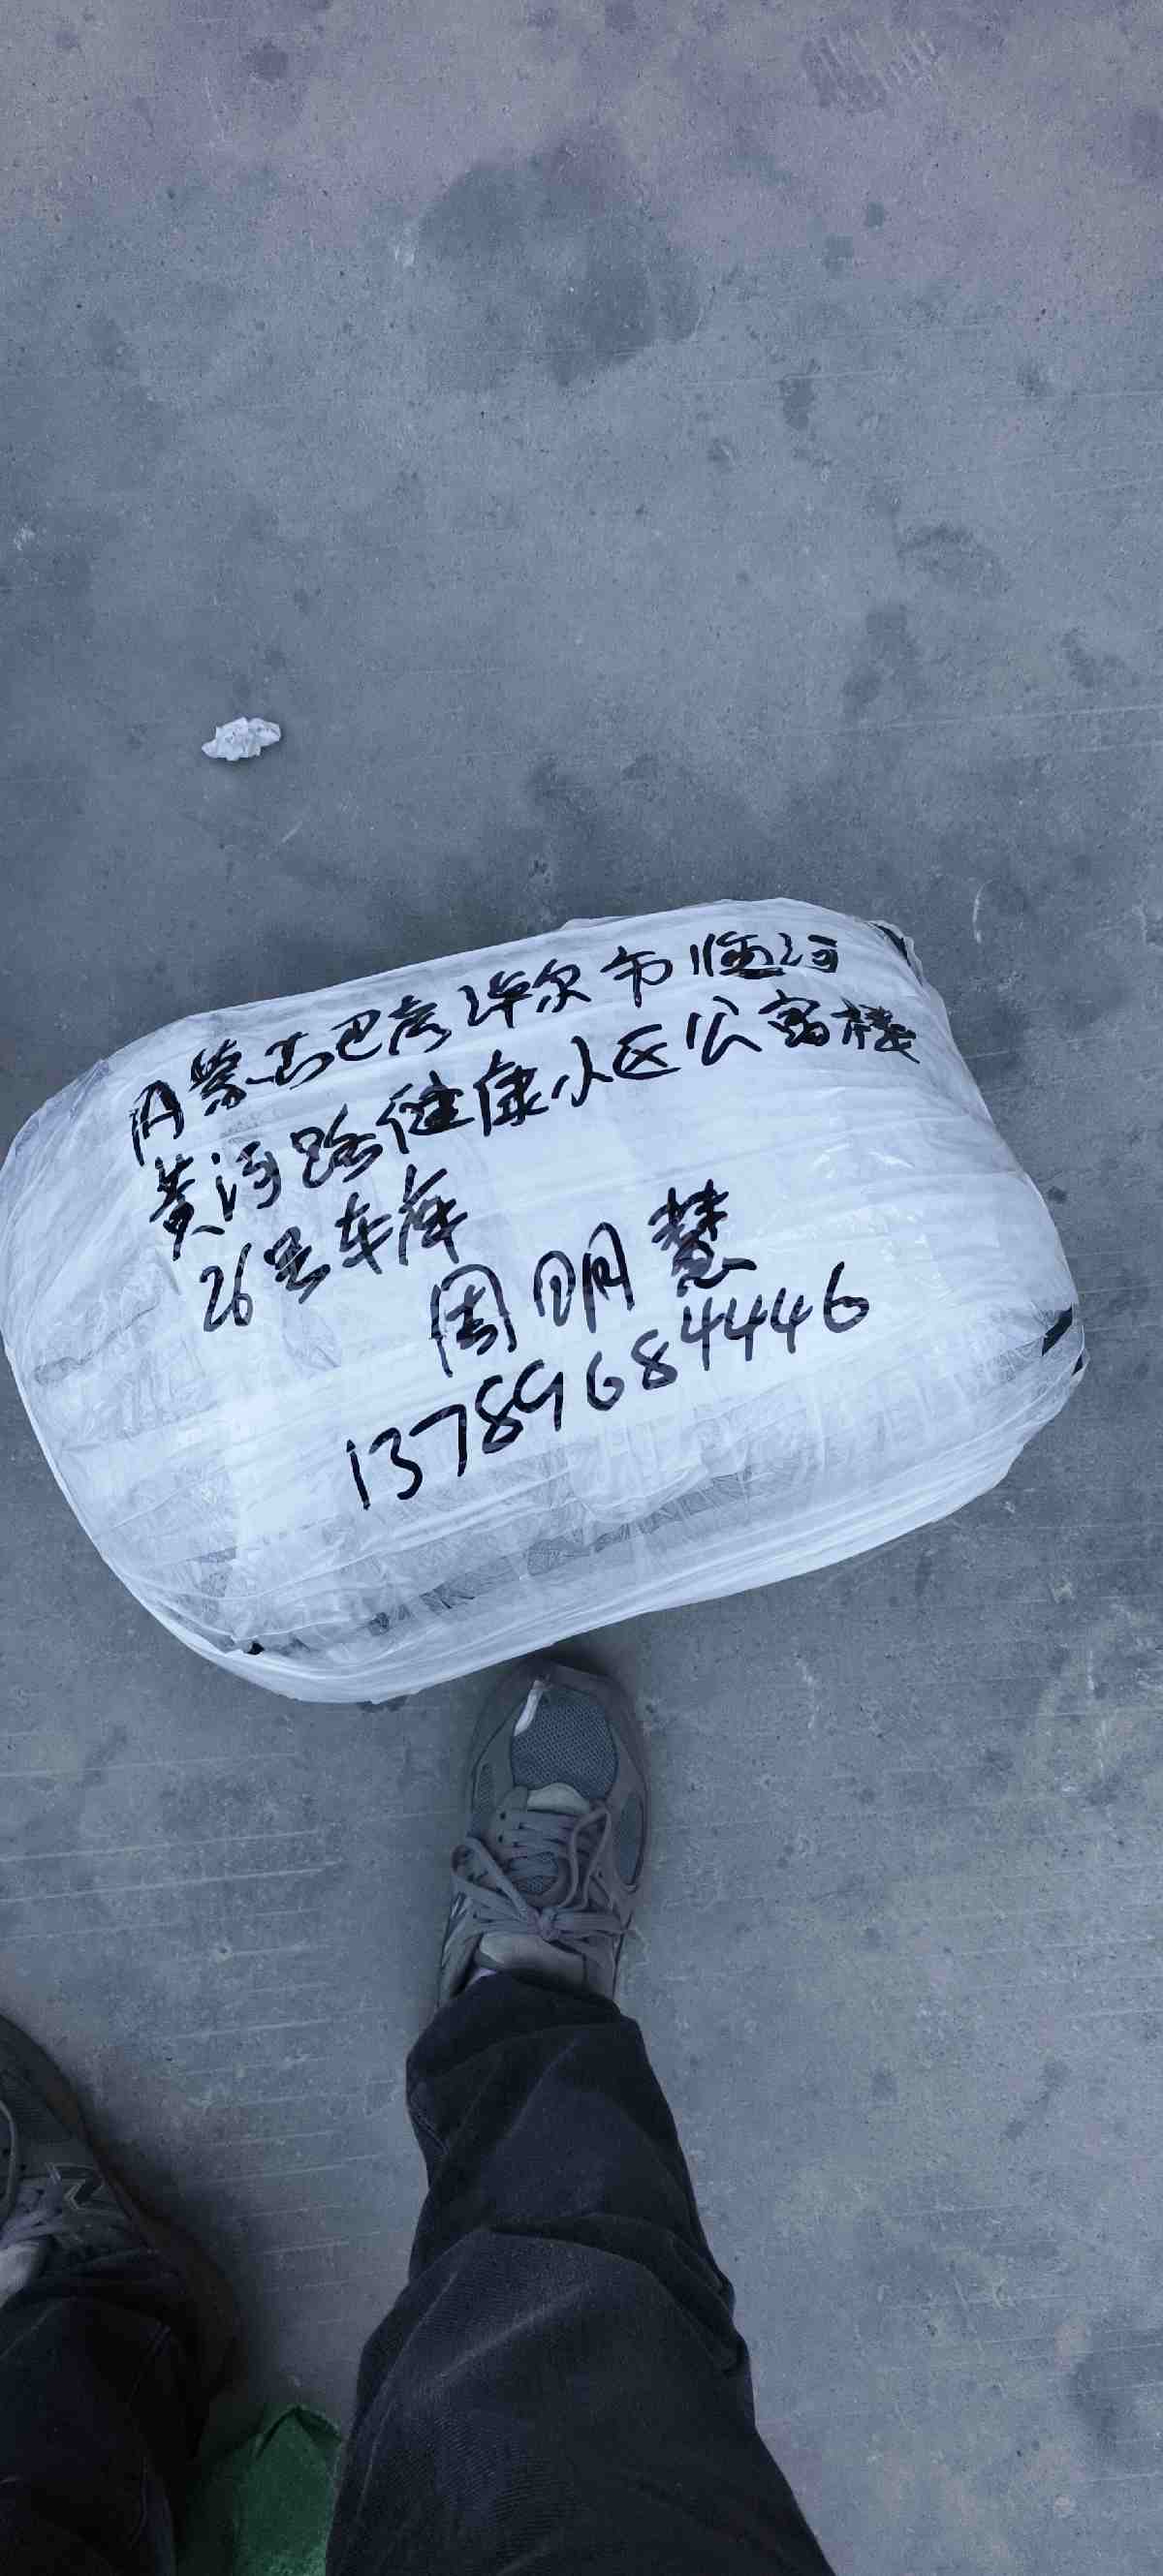 内蒙古巴彦淖尔市临河
黄河路健康小区公寓楼
26号车库
周明慧
13789684446